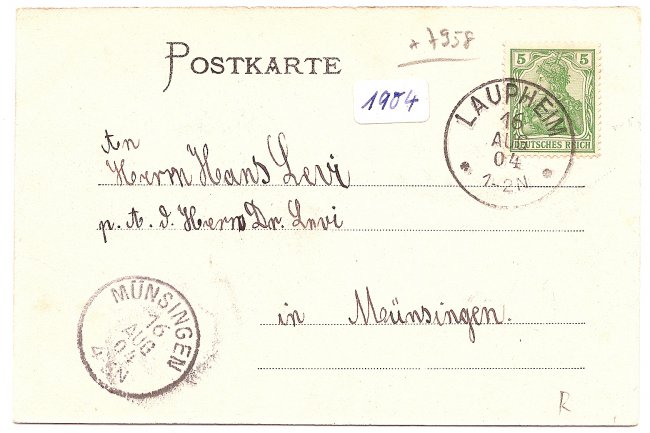 * 7958
POSTKARTE
1904
5 5
DEUTSCHES REICH
LAUPHEIM
16
AUG
04
1-2N
An
Herrn Hans Levi
p. A. d. Herrn Dr. Levi
in Münsingen.
MÜNSINGEN
16
AUG
04
R